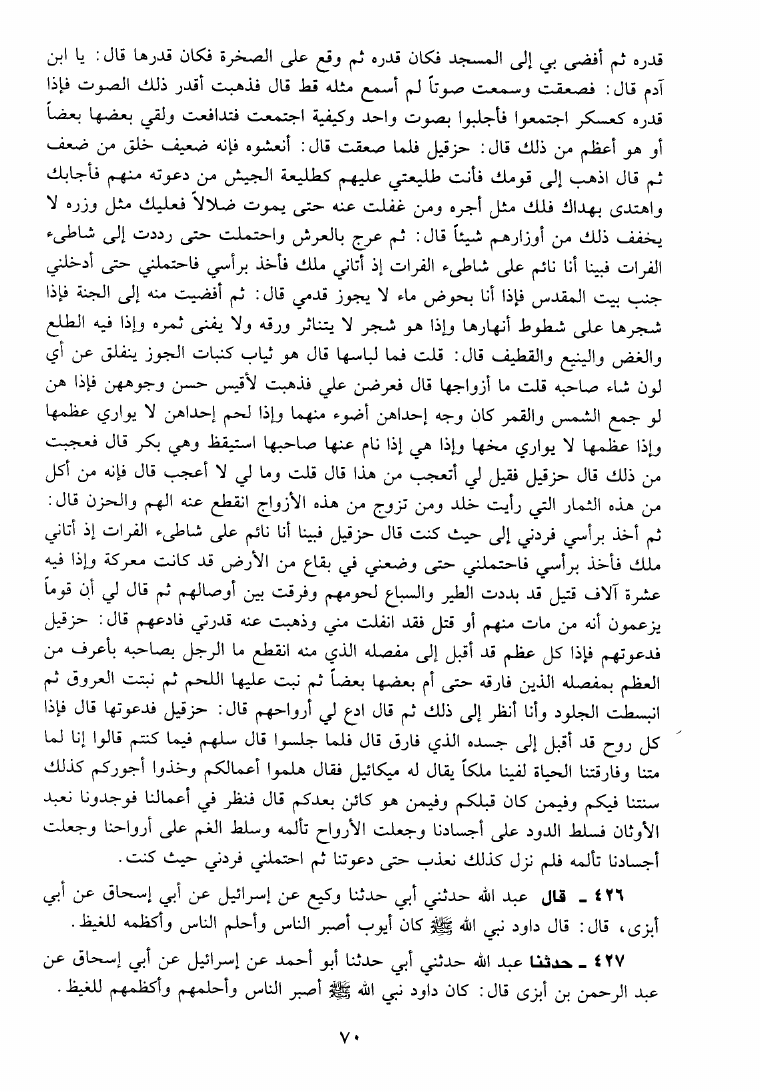 قدره ثم أفضى بي إلى المسجد فكان قدره ثم وقع على الصخرة فكان قدرها قال: يا ابن
آدم قال: فصعقت وسمعت صوتاً لم أسمع مثله قط قال فذهبت أقدر ذلك الصوت فإذا
قدره كعسكر اجتمعوا فأجلبوا بصوت واحد وكيفية اجتمعت فتدافعت ولقي بعضها بعضاً
أو هو أعظم من ذلك قال: حزقيل فلما صعقت قال: أنعشوه فإنه ضعيف خلق من ضعف
ثم قال اذهب إلى قومك فأنت طليعتي عليهم كطليعة الجيش من دعوته منهم فأجابك
واهتدى بهداك فلك مثل أجره ومن غفلت عنه حتى يموت ضلالاً فعليك مثل وزره لا
يخفف ذلك من أوزارهم شيئاً قال: ثم عرج بالعرش واحتملت حتى رددت إلى شاطىء
الفرات فبينا أنا نائم على شاطىء الفرات إذ أتاني ملك فأخذ برأسي فاحتملني حتى أدخلني
جنب بيت المقدس فإذا أنا بحوض ماء لا يجوز قدمي قال: ثم أفضيت منه إلى الجنة فإذا
شجرها على شطوط أنهارها وإذا هو شجر لا يتناثر ورقه ولا يفنى ثمره وإذا فيه الطلع
والغض والينيع والقطيف قال: قلت فما لباسها قال هو ثياب كنبات الجوز ينفلق عن أي
لون شاء صاحبه قلت ما أزواجها قال فعرضن علي فذهبت لأقيس حسن وجوههن فإذا هن
لو جمع الشمس والقمر كان وجه إحداهن أضوء منهما وإذا لحم إحداهن لا يواري عظمها
وإذا عظمها لا يواري مخها وإذا هي إذا نام عنها صاحبها استيقظ وهي بكر قال فعجبت
من ذلك قال حزقيل فقيل لي أتعجب من هذا قال قلت وما لي لا أعجب قال فإنه من أكل
من هذه الثمار التي رأيت خلد ومن تزوج من هذه الأزواج انقطع عنه الهم والحزن قال:
ثم أخذ برأسي فردني إلى حيث كنت قال حزقيل فبينا أنا نائم على شاطىء الفرات إذ أتاني
ملك فأخذ برأسي فاحتملني حتى وضعني في بقاع من الأرض قد كانت معركة وإذا فيه
عشرة آلاف قتيل قد بددت الطير والسباع لحومهم وفرقت بين أوصالهم ثم قال لي أن قوماً
يزعمون أنه من مات منهم أو قتل فقد انفلت مني وذهبت عنه قدرتي فادعهم قال: حزقيل
فدعوتهم فإذا كل عظم قد أقبل إلى مفصله الذي منه انقطع ما الرجل بصاحبه بأعرف من
العظم بمفصله الذين فارقه حتى أم بعضها بعضاً ثم نبت عليها اللحم ثم نبتت العروق ثم
انبسطت الجلود وأنا أنظر إلى ذلك ثم قال ادع لي أرواحهم قال: حزقيل فدعوتها قال فإذا
كل روح قد أقبل إلى جسده الذي فارق قال فلما جلسوا قال سلهم فيما كنتم قالوا إنا لما
متنا وفارقتنا الحياة لفينا ملكاً يقال له ميكائيل فقال هلموا أعمالكم وخذوا أجوركم كذلك
سنتنا فيكم وفيمن كان قبلكم وفيمن هو كائن بعدكم قال فنظر في أعمالنا فوجدونا نعبد
الأوثان فسلط الدود على أجسادنا وجعلت الأرواح تألمه وسلط الغم على أرواحنا وجعلت
أجسادنا تألمه فلم نزل كذلك نعذب حتى دعوتنا ثم احتملني فردني حيث كنت.
٤٢٦ ـ قال عبد الله حدثني أبي حدثنا وكيع عن إسرائيل عن أبي إسحاق عن أبي
أبزى، قال: قال داود نبي الله ﷺ كان أيوب أصبر الناس وأحلم الناس وأكظمه للغيظ.
٤٢٧ ـ حدثنا عبد الله حدثني أبي حدثنا أبو أحمد عن إسرائيل عن أبي إسحاق عن
عبد الرحمن بن أبزى قال: كان داود نبي الله ﷺ أصبر الناس وأحلمهم وأكظمهم للغيظ.
٧٠